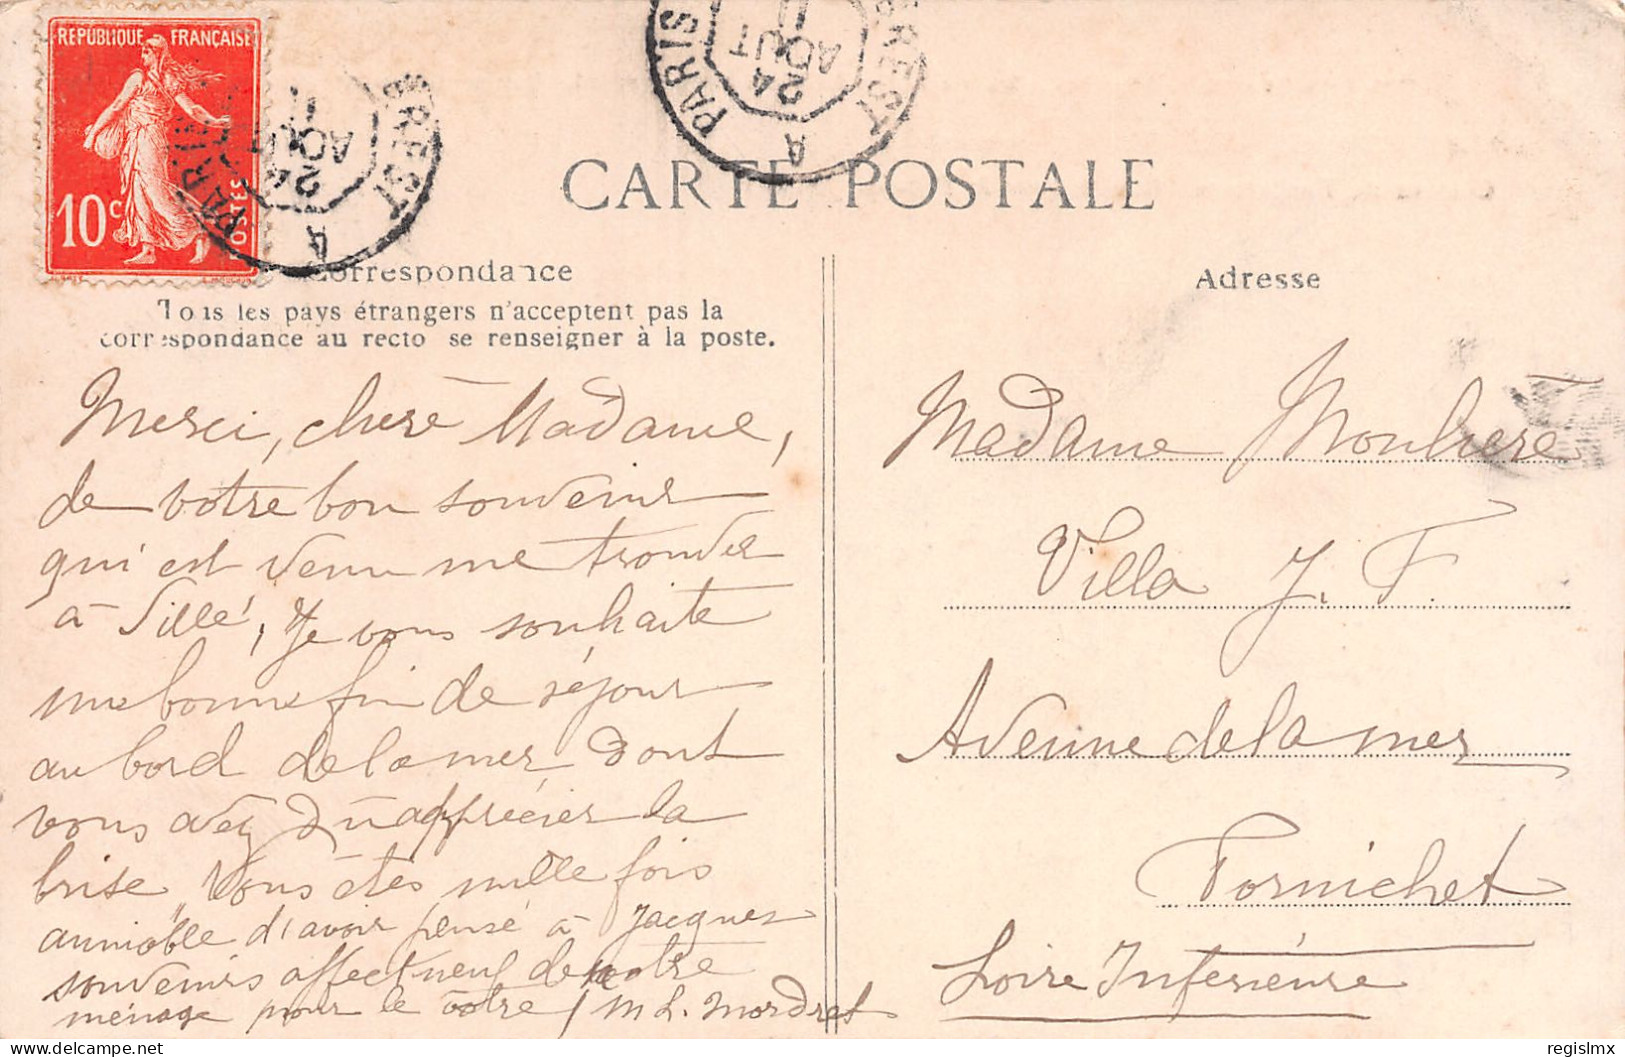 RÉPUBLIQUE FRANÇAISE
10c
POSTES
PARIS A BREST
24
AOUT
11
PARIS A BREST
24
AOUT
11
CARTE POSTALE
Correspondance
Tous les pays étrangers n'acceptent pas la
correspondance au recto se renseigner à la poste.
Merci, chère Madame,
de votre bon souvenir
qui est venu me trouver
à Sillé, Je vous souhaite
une bonne fin de séjour
au bord de la mer dont
vous avez dû apprécier la
brise, Vous êtes mille fois
aimable d'avoir pensé à Jacques
souvenirs affectueux de notre
ménage pour le vôtre / M L. Mordret
Adresse
Madame
Villa J. F.
Avenue de la mer
Pornichet
Loire Inférieure
regislmx